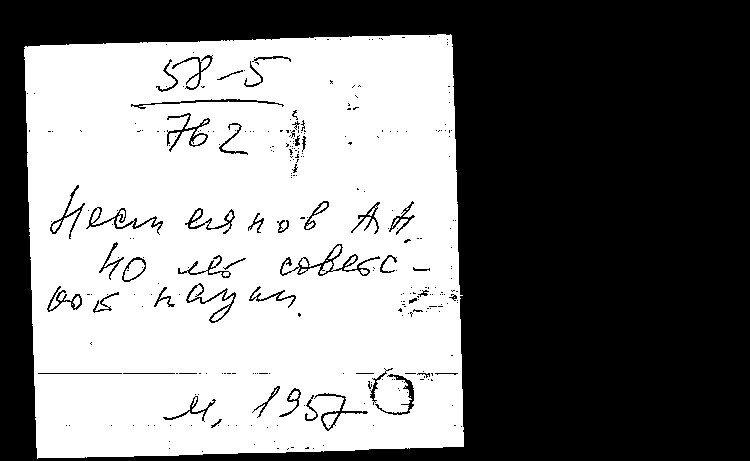 58-5
762
Несмеянов А.Н.
40 лет советс-
кой науки.
М, 1957